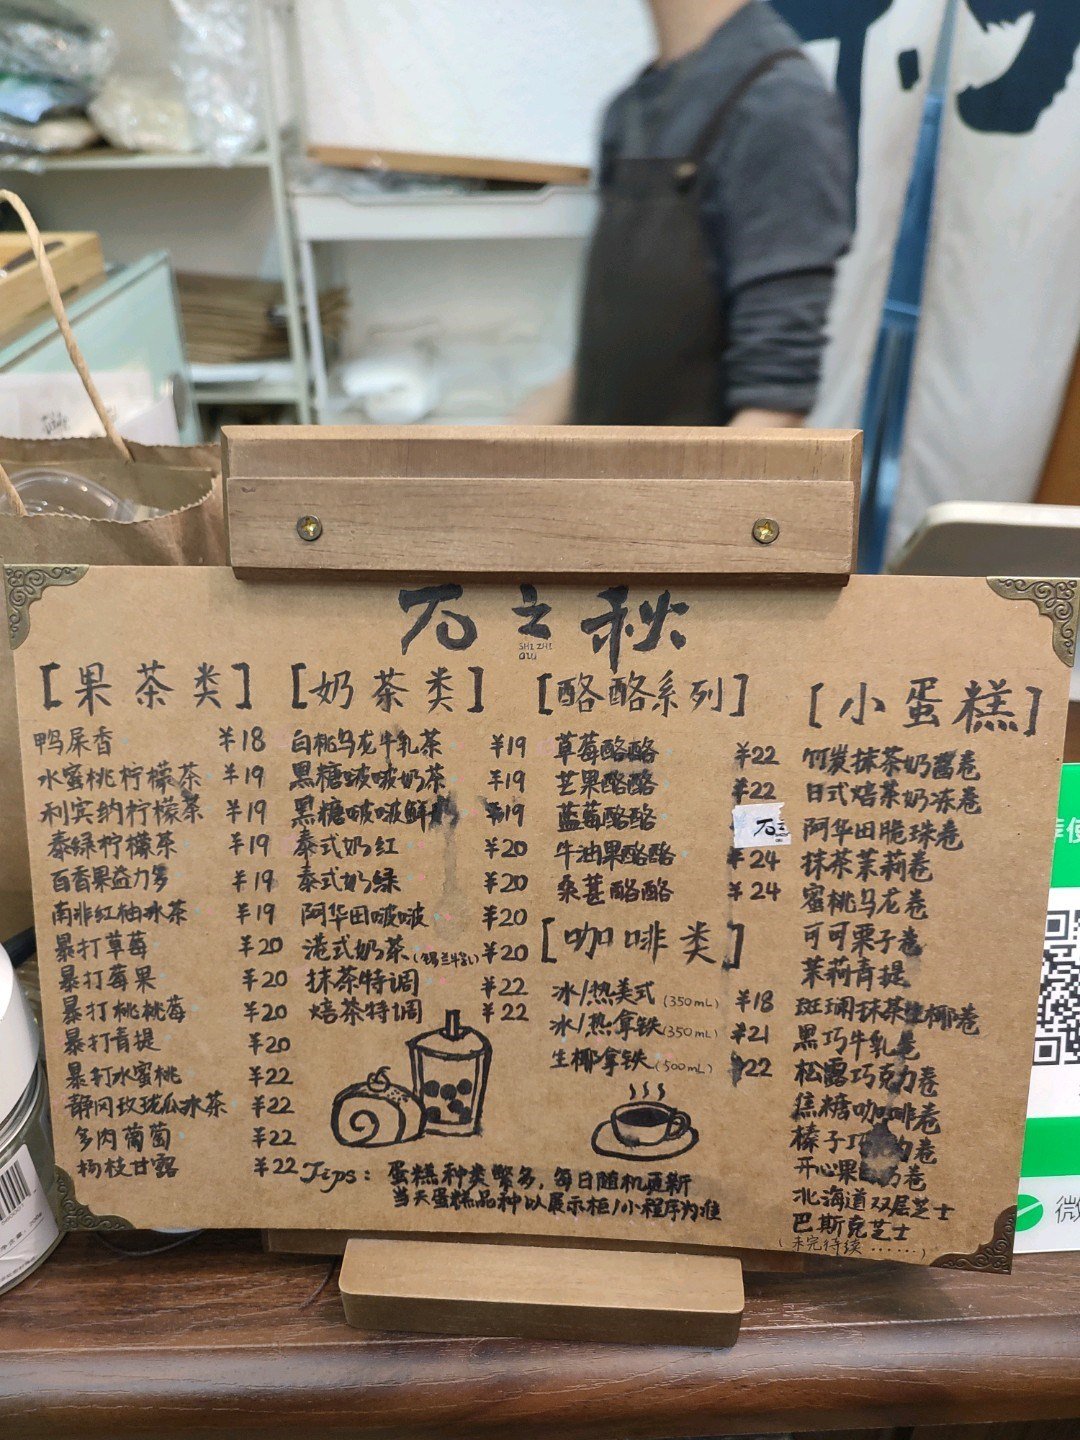 石之秋
SHI ZHI
QIU
[果茶类]
鸭屎香 ¥18
水蜜桃柠檬茶 ¥19
利宾纳柠檬茶 ¥19
泰绿柠檬茶 ¥19
百香果益力多 ¥19
南非红柚冰茶 ¥19
暴打草莓 ¥20
暴打莓果 ¥20
暴打桃桃莓 ¥20
暴打青提 ¥20
暴打水蜜桃 ¥22
静冈玫珑瓜冰茶 ¥22
多肉葡萄 ¥22
杨枝甘露 ¥22
[奶茶类]
白桃乌龙牛乳茶 ¥19
黑糖啵啵奶茶 ¥19
黑糖啵啵鲜 ¥19
泰式奶红 ¥20
泰式奶绿 ¥20
阿华田啵啵 ¥20
港式奶茶 ¥20
抹茶特调 ¥22
焙茶特调 ¥22
[酪酪系列]
草莓酪酪 ¥22
芒果酪酪 ¥22
蓝莓酪酪
石之
牛油果酪酪 ¥24
桑葚酪酪 ¥24
[咖啡类]
冰/热美式(350mL) ¥18
冰/热拿铁(350mL) ¥21
生椰拿铁(500mL) ¥22
[小蛋糕]
竹炭抹茶奶酱卷
日式焙茶奶冻卷
阿华田脆珠卷
抹茶茉莉卷
蜜桃乌龙卷
可可栗子卷
茉莉青提
斑斓抹茶生椰卷
黑巧牛乳卷
松露巧克力卷
焦糖咖啡卷
榛子巧 卷
开心果 卷
北海道双层芝士
巴斯克芝士
(未完待续……)
Tips: 蛋糕种类繁多,每日随机更新
当天蛋糕品种以展示柜/小程序为准
微